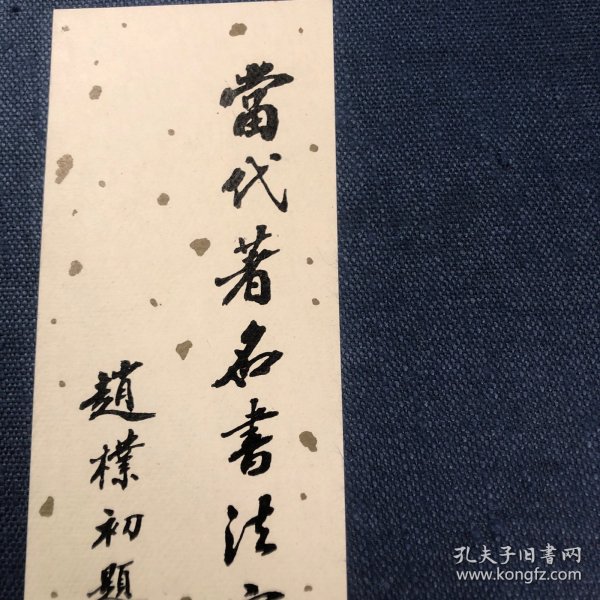 當代著名書法
趙樸初題
孔夫子旧书网
www.kongfz.com